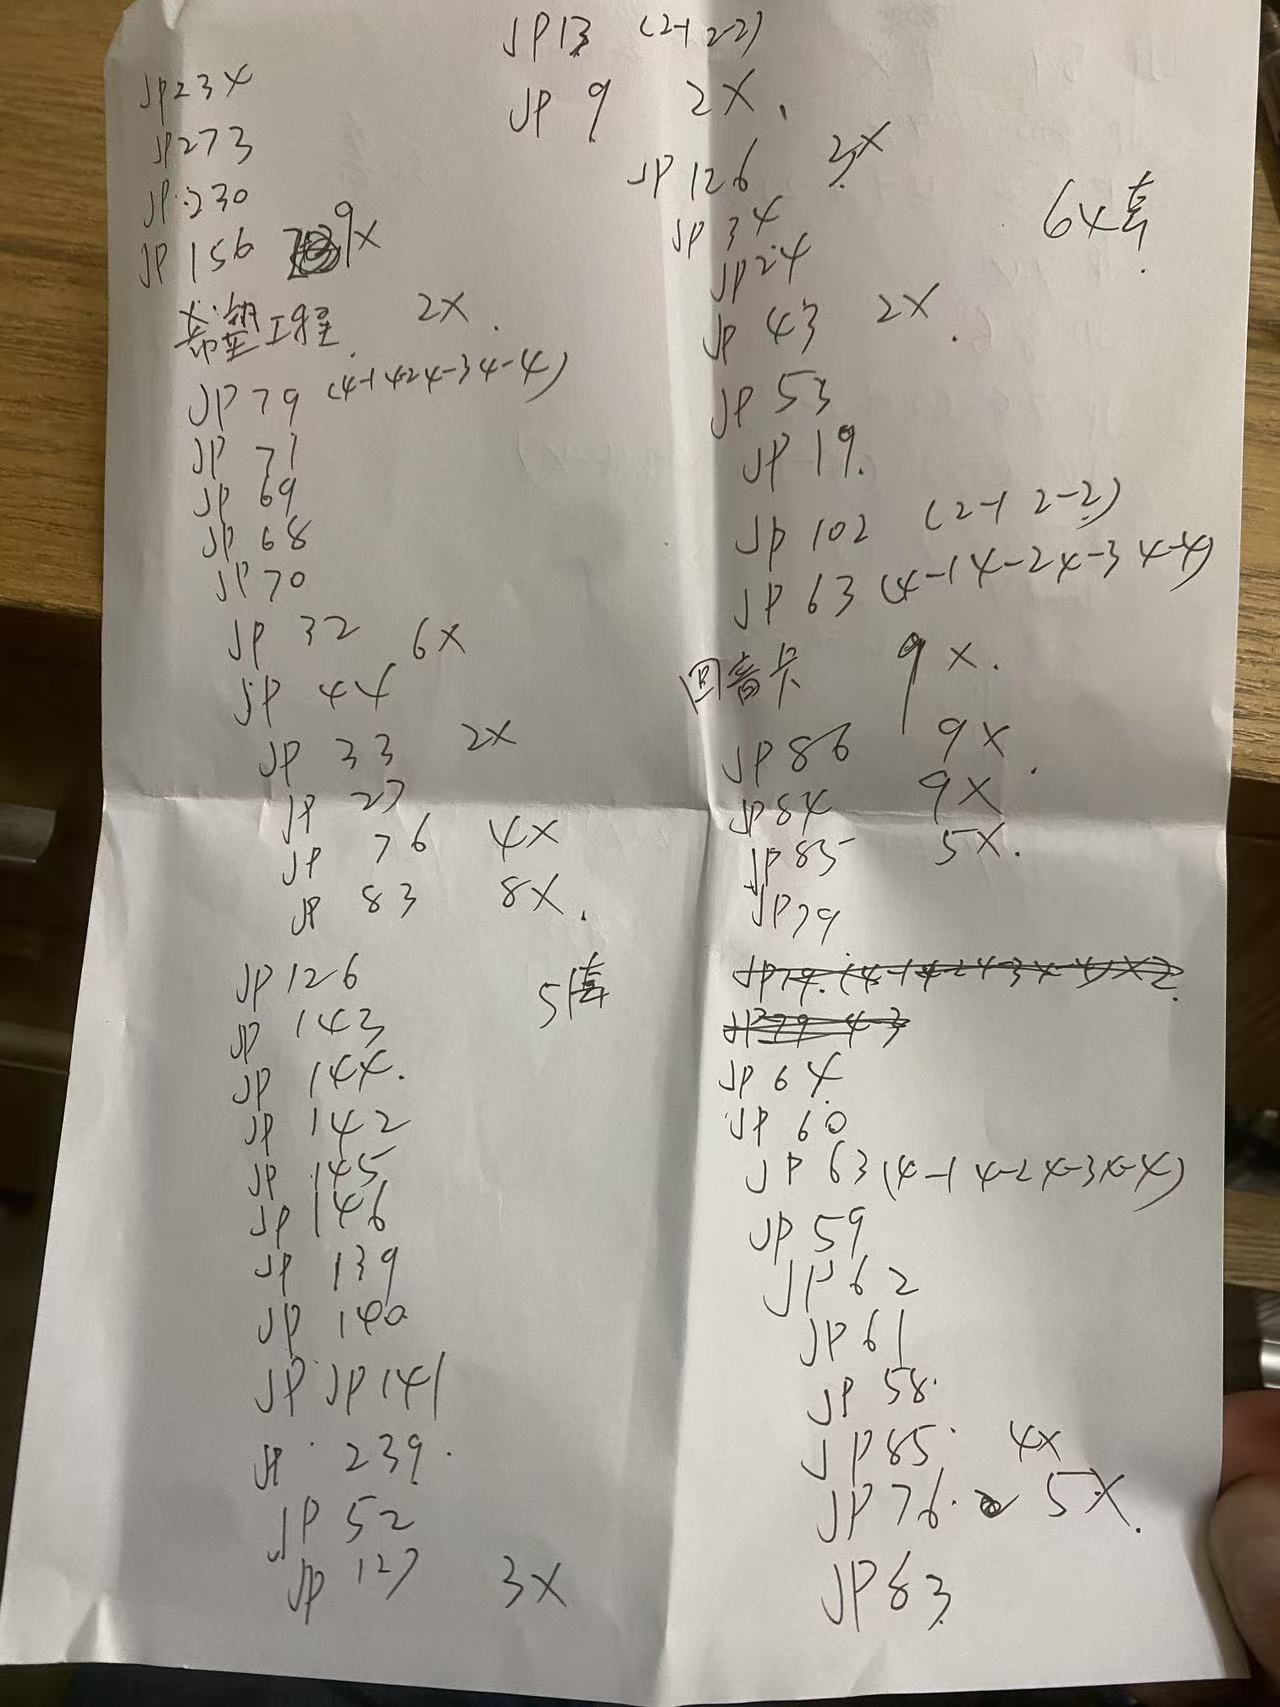 JP13 (2-1 2-2)
JP 9 2X.
JP234
JP273
JP 230
JP 156 9X
希望工程 2X.
JP79 (4-1 4-2 4-3 4-4)
JP 71
JP 69
JP 68
JP 70
JP 32 6X
JP 44
JP 33 2X
JP 27
JP 76 4X
JP 83 8X.
JP126
JP 143
JP 144.
JP 142
JP 145
JP 146
JP 139
JP 140
JP JP 141
JP 239.
JP 52
JP 127 3X
5套
JP 126 3X
JP 34
JP24
JP 43 2X.
JP 53
JP 19.
JP 102 (2-1 2-2)
JP 63 (4-1 4-2 4-3 4-4)
回音卡 9X.
JP 86 9X.
JP84 9X
JP 85 5X.
JP79
JP79.(4-1 4-2 4-3 4-4)X2
JP79 4-3
JP 64
JP 60
JP 63 (4-1 4-2 4-3 4-4)
JP 59
JP 62
JP 61
JP 58.
JP 85. 4X
JP76. 5X.
JP83
64套